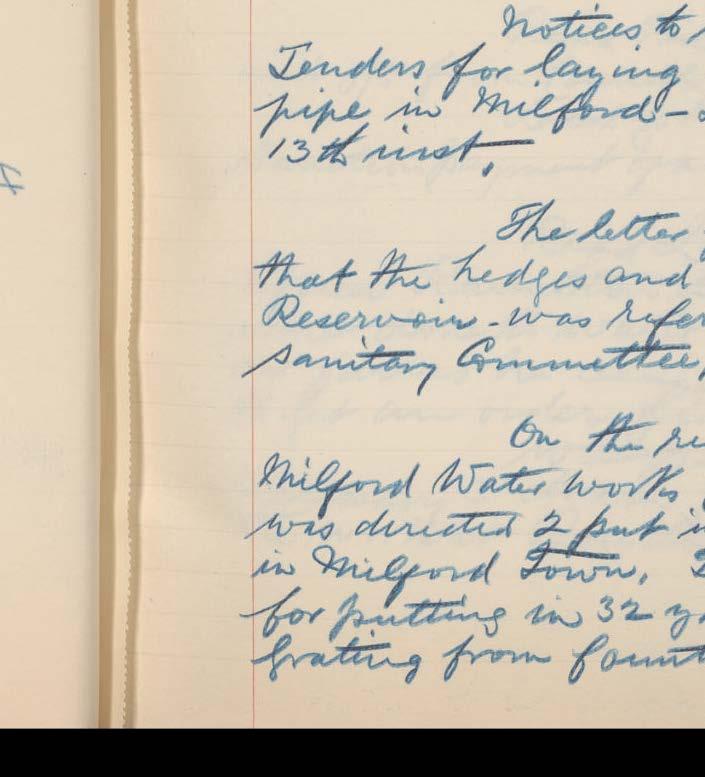 Notices to
Tenders for laying
pipe in Milford -
13th inst.
The letter
that the hedges and
Reservoir - was refer
Sanitary Committee,
On the re
Milford Water works
was directed 2 put i
in Milford Town.
for putting in 32 y
Grating from Fount